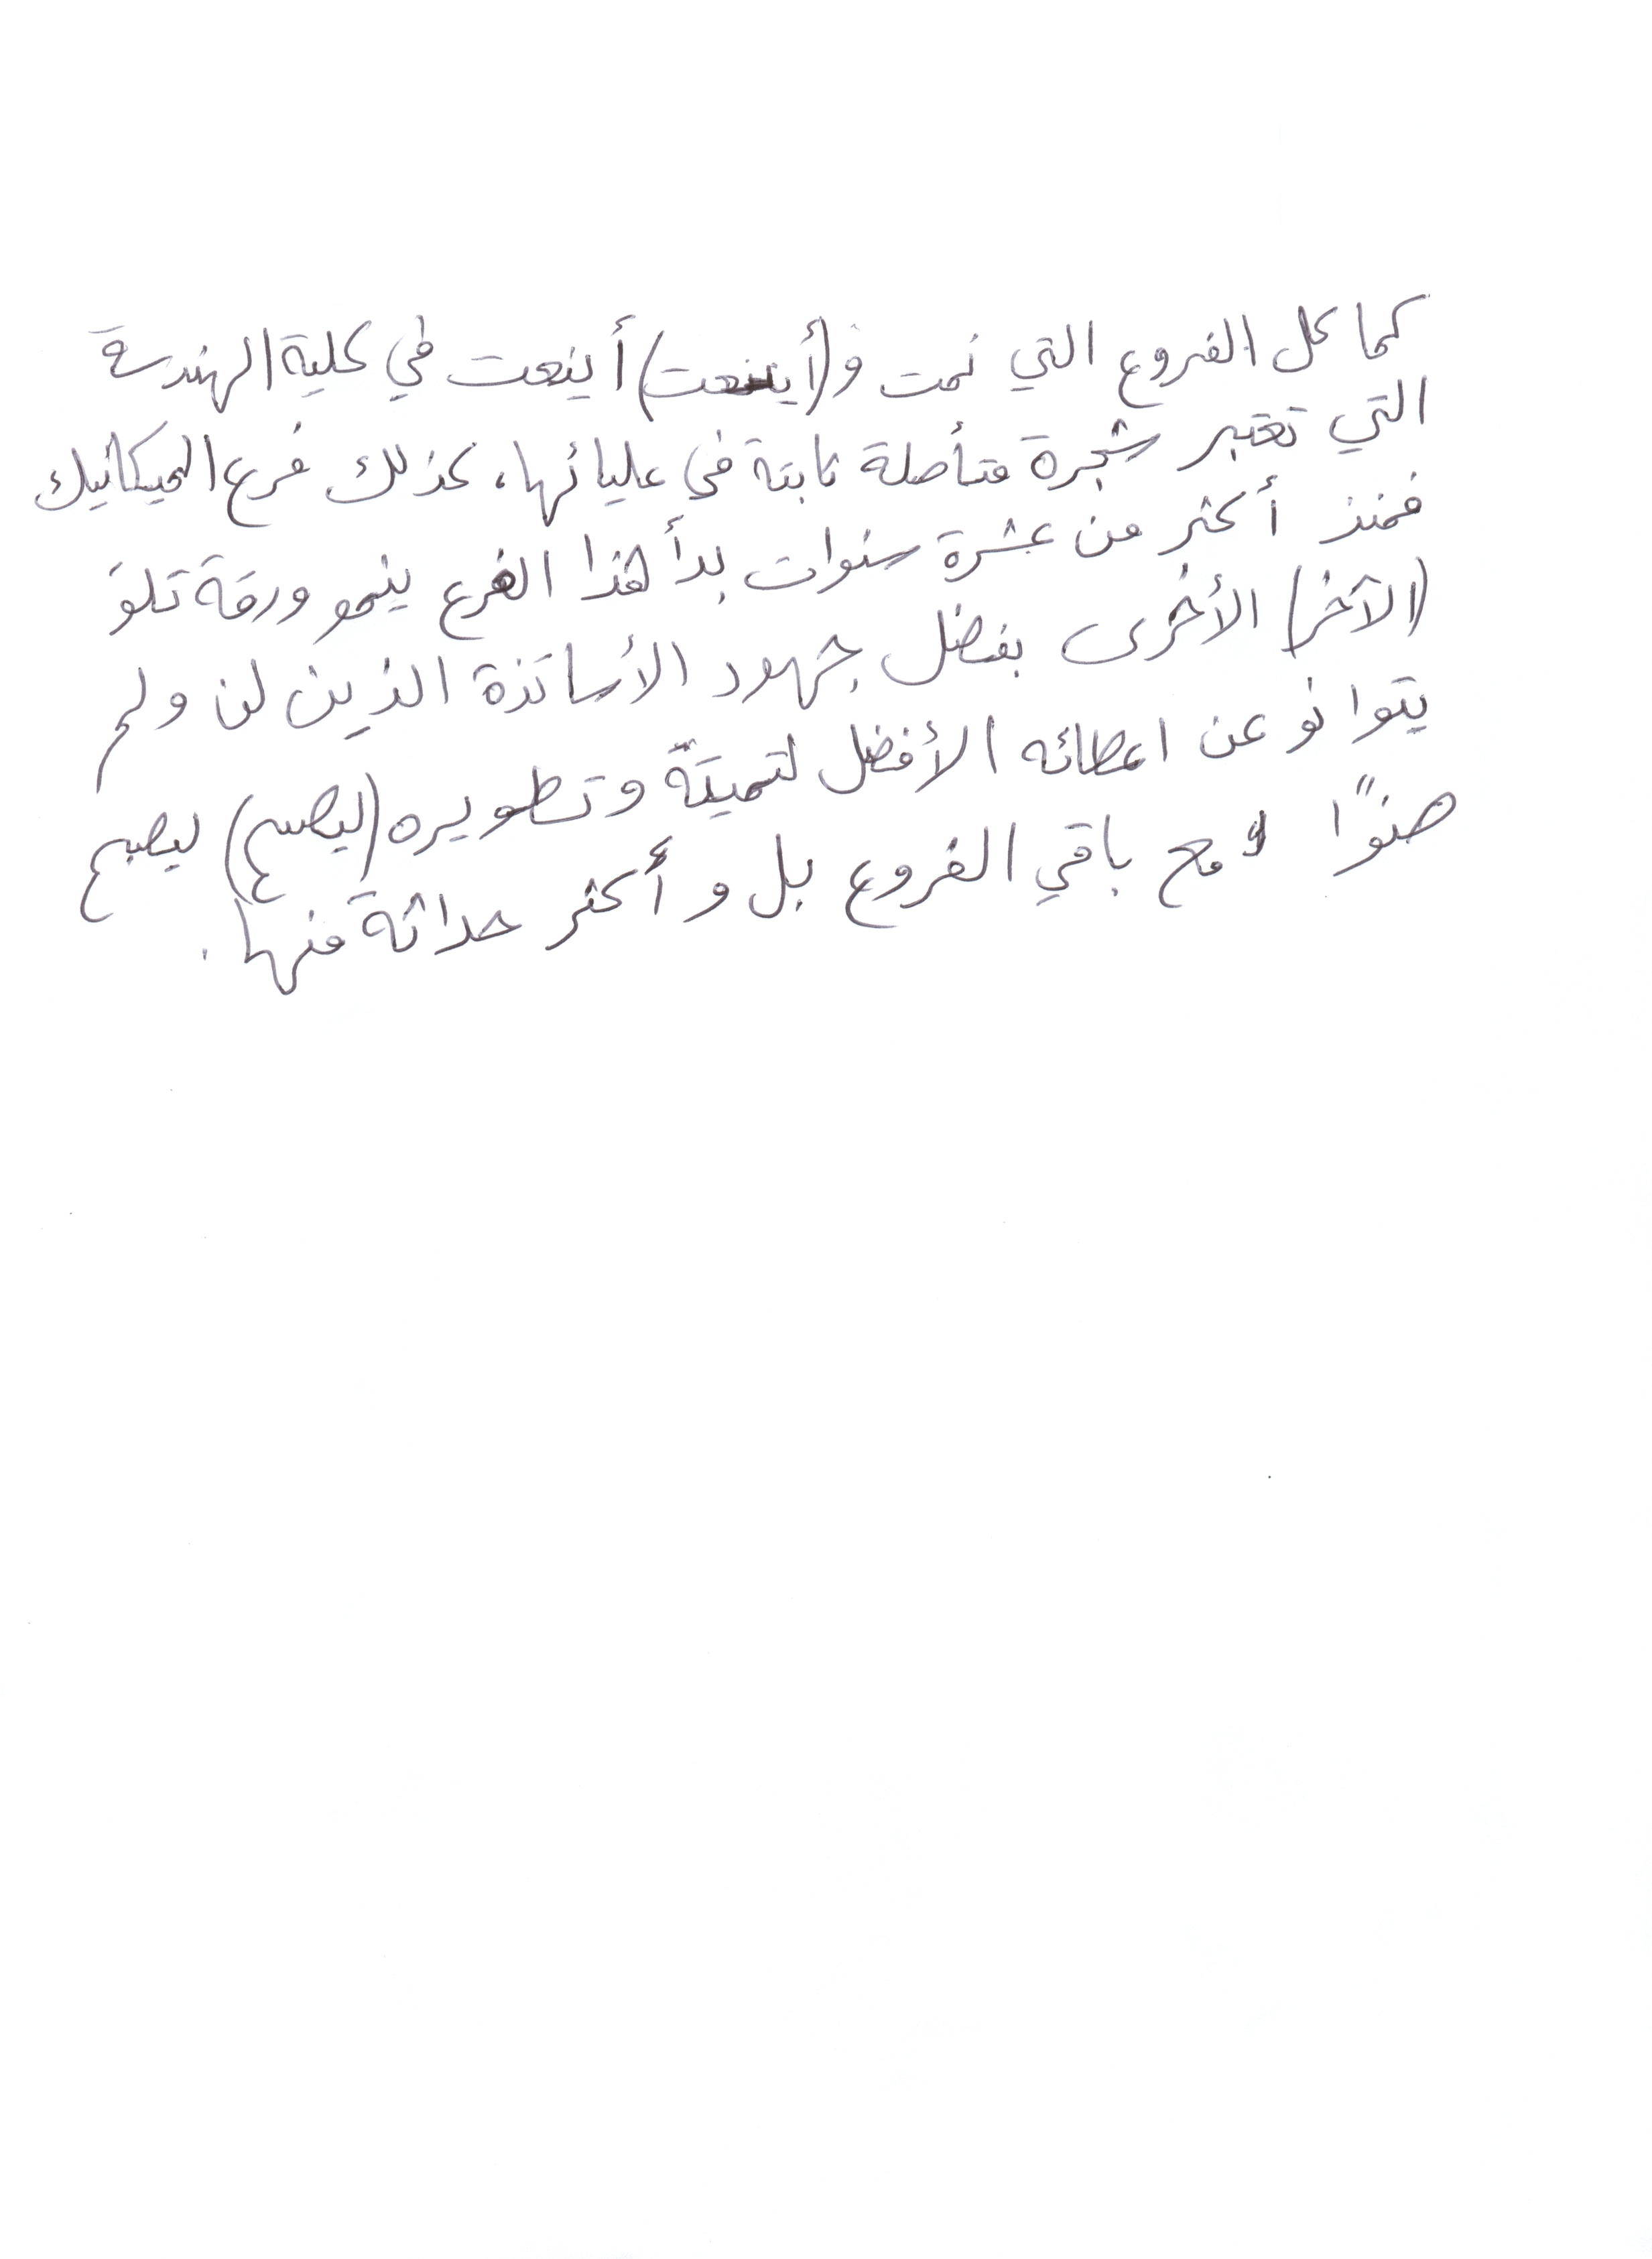 كما كل الفروع التي نمت و (أينعت) أينعت في كلية الهندسة
التي تعتبر شجرة متأصلة ثابتة في عليائها، كذلك فرع الميكانيك
فمنذ أكثر من عشرة سنوات بدأ هذا الفرع ينمو ورقة تلوَ
(الآخر) الأخرى بفضل جهود الأساتذة الذين لن ولم
يتوانو عن اعطائه الأفضل لتنميته وتطويره (ليصبح) ليصبح
صنوًا مع باقي الفروع بل و أكثر حداثة منها.